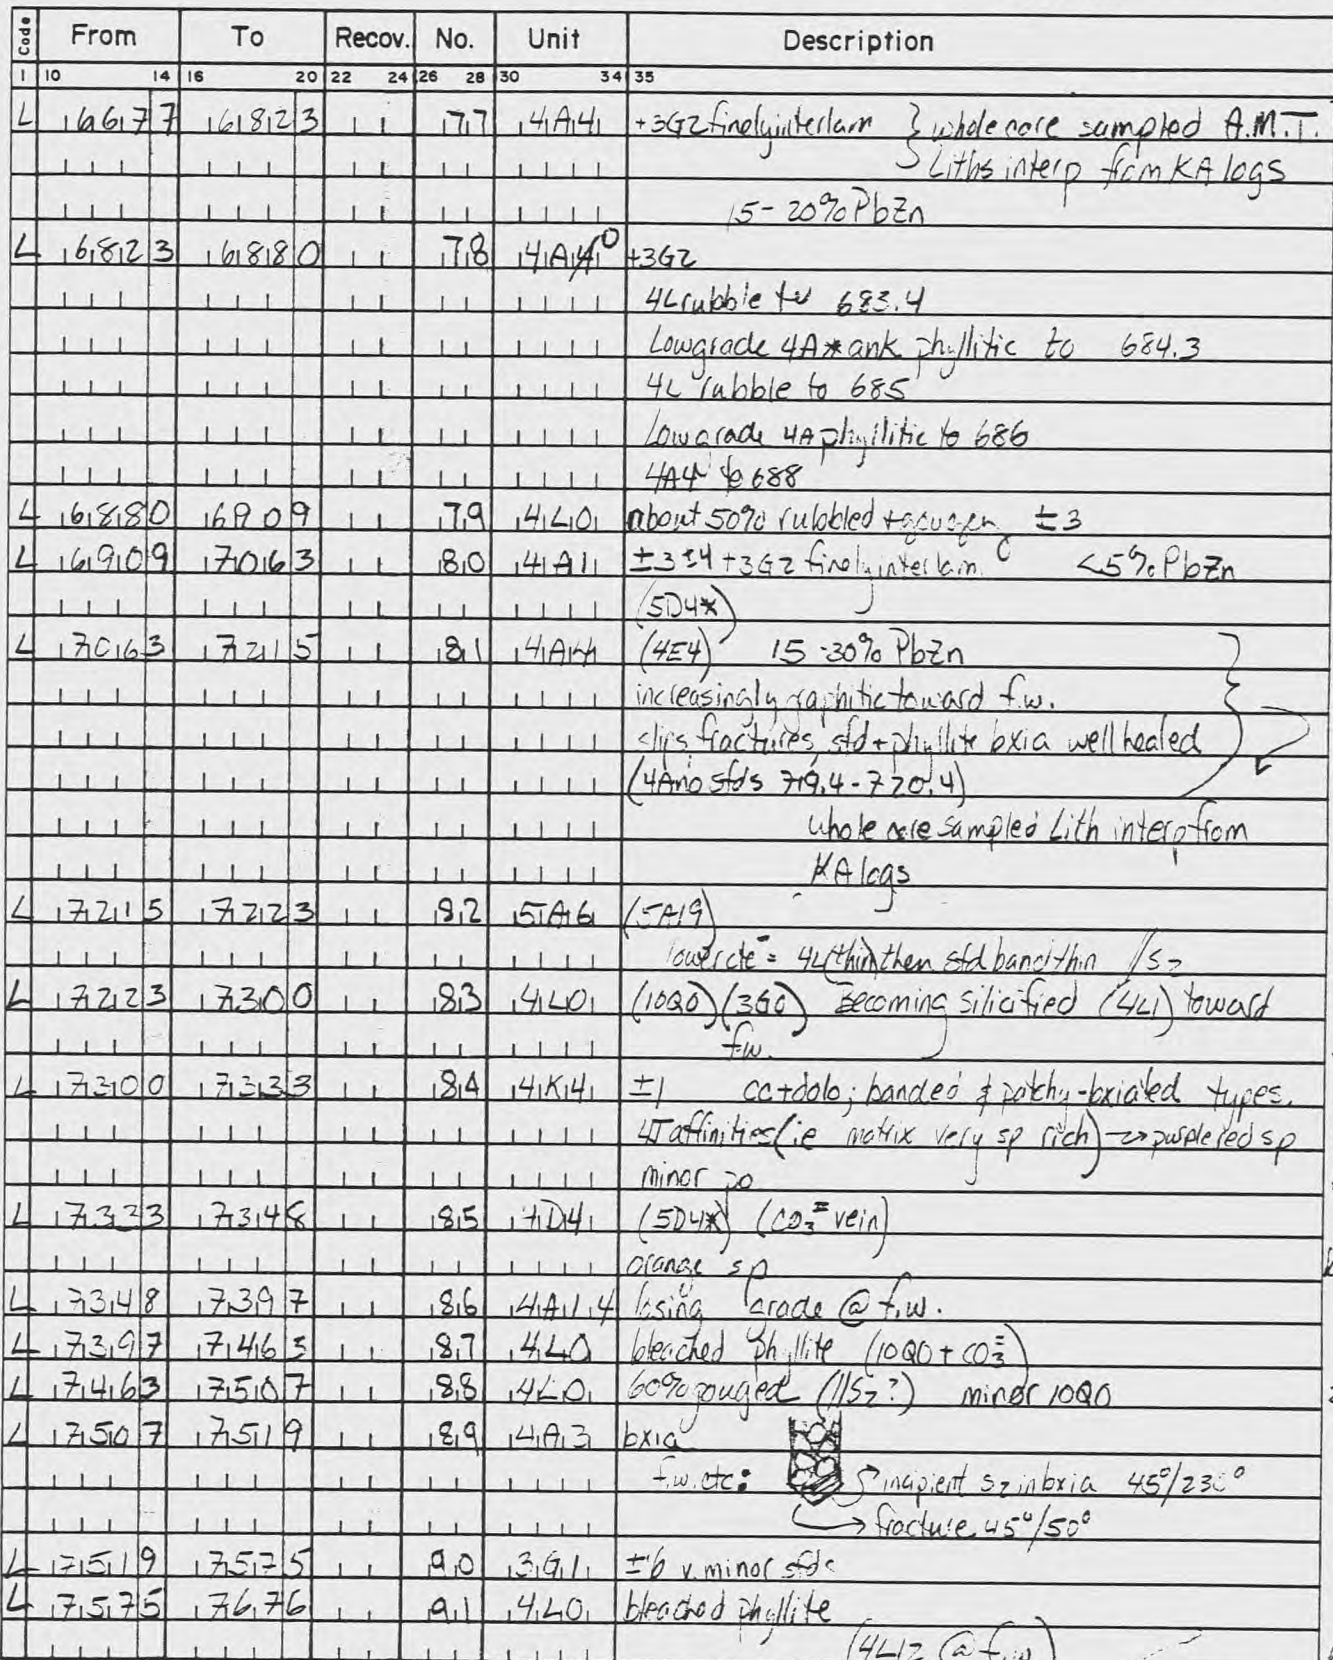 Code From To Recov. No. Unit Description
1 10 14 16 20 22 24 26 28 30 34 35
L 6677 6823 77 4A4 +3G2 finely interlam } whole core sampled A.M.T.
Liths interp from KA logs
15-20% PbZn
L 6823 6880 78 4A0 +3G2
4L rubble to 683.4
Lowgrade 4A* ank phyllitic to 684.3
4L rubble to 685
Lowgrade 4A phyllitic to 686
4A4 to 688
L 6880 6909 79 4L0 about 50% rubbled ±3
L 6909 7063 80 4A1 ±3±4 +3G2 finely interlam. <5% PbZn
(5D4*)
L 7063 7215 81 4A4 (4E4) 15-30% PbZn
increasingly graphitic toward f.w.
slips fractures, sfd + phyllite bxia well healed
(4A no sfds 719.4-720.4)
whole core sampled Lith interp from
KA logs
L 7215 7223 82 5A6 (5A19)
lower ctc = 4L (thin) then sfd band thin //S2
L 7223 7300 83 4L0 (10Q0) (3G0) Becoming silicified (4L1) toward
f.w.
L 7300 7333 84 4K4 ±1 cc+dolo; banded & patchy-bxiated types.
4J affinities (ie matrix very sp rich) → purple red sp
minor po
L 7333 7348 85 4D4 (5D4*) (CO3= vein)
orange sp
L 7348 7397 86 4A14 losing grade @ f.w.
L 7397 7463 87 4L0 bleached phyllite (10Q0 + CO3=)
L 7463 7507 88 4L0 60% gouged (//S2?) minor 10Q0
L 7507 7519 89 4A3 bxia
f.w. ctc: incipient S2 in bxia 45°/230°
→ fracture 45°/50°
L 7519 7575 90 3G1 ±6 v. minor sfds
L 7575 7676 91 4L0 bleached phyllite
(4L12 @ f.w)